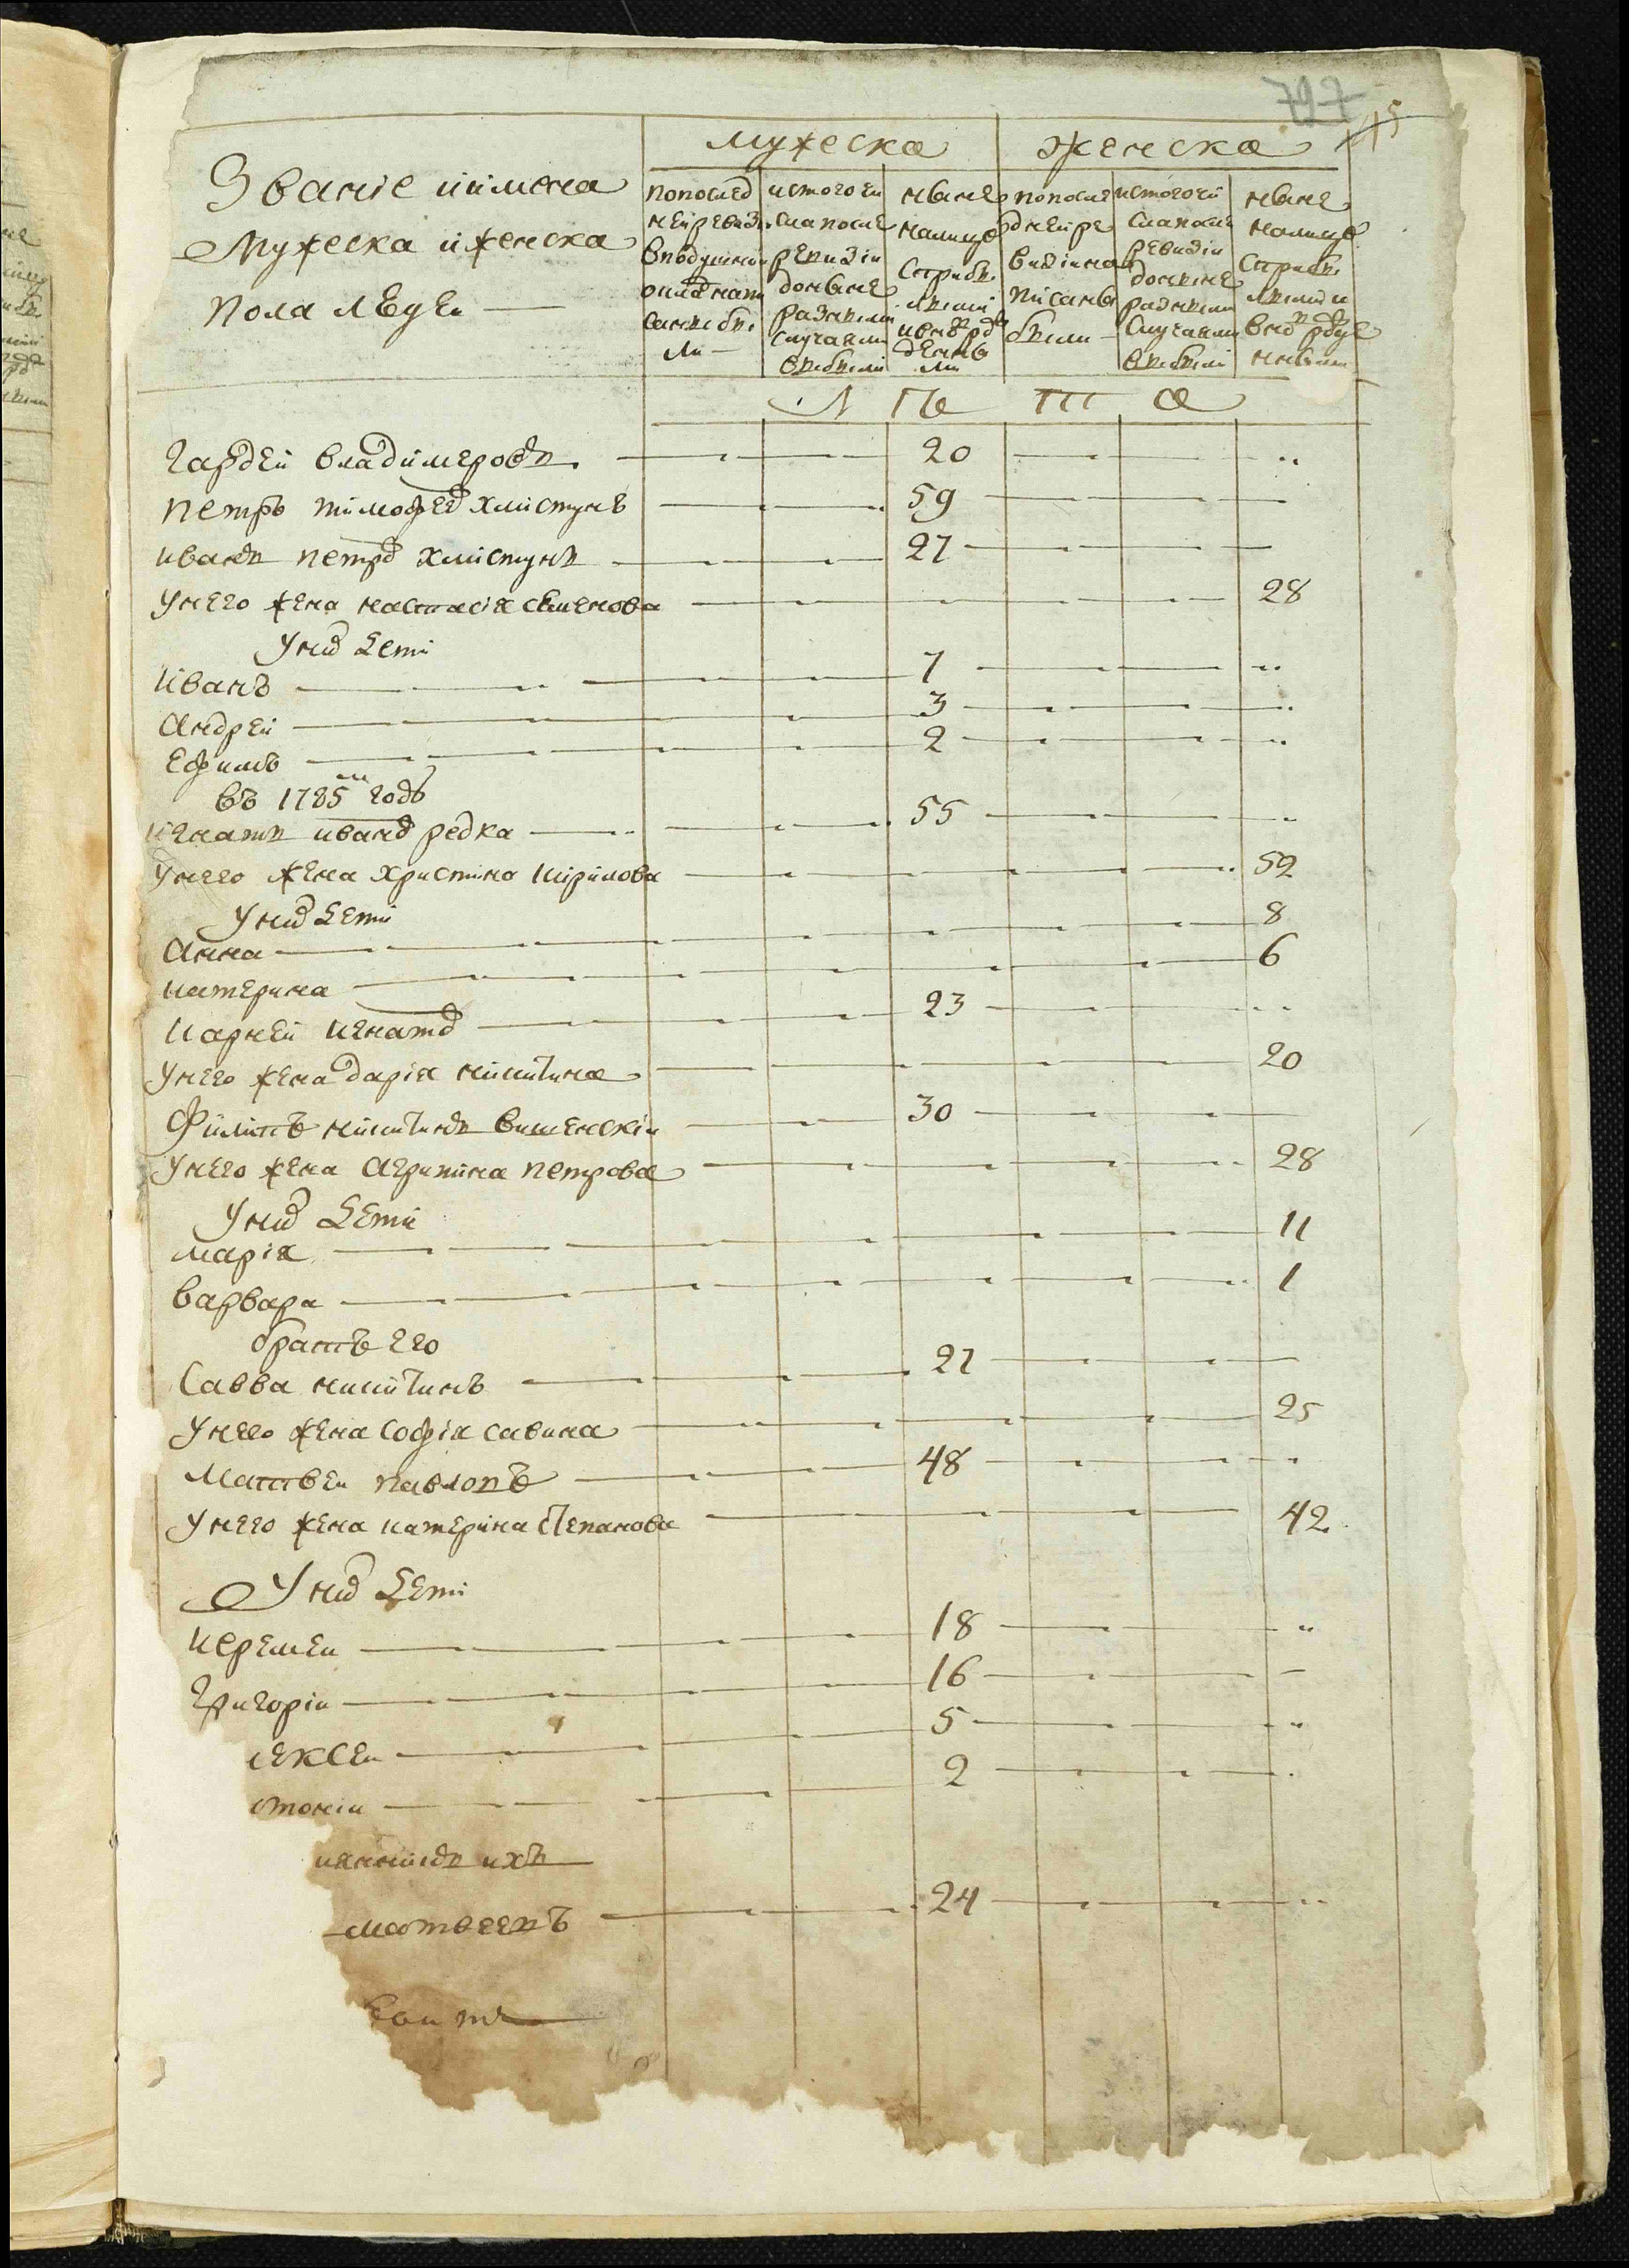 727
5
Званіе иимена
Мужеска иженска
пола людеи
мужеска
женска
попослед нейревизіи вподушном окладе написаны были
истогочи слапосле ревизіи доныне разными случаями выбыли
ныне налицо сприбылыми ивновь рожденными
попоследнейре визіина писаны были
истогочи слапосле ревизіи доныне разными случаями выбыли
ныне налицо сприбылыми и вновь рожденными
Л Ѣ Т А
Гардей владимеровъ 20
петръ тимофеевъ хлистунъ 59
иванъ петровъ хлистунъ 27
унего жена настасія семенова 28
уних дети
иванъ 7
андрей 3
ефимъ 2
въ 1785м годѣ
игнатъ ивановъ редка 55
унего жена христина кирилова 52
уних дети
анна 8
катерина 6
карней игнатовъ 23
унего жена дарія никитина 20
Филипъ никитинъ вишенскіи 30
унего жена агрипина петрова 28
уних дети
марія 11
варвара 1
братъ его
Савва никитинъ 27
унего жена софія савина 25
Матвеи павловъ 48
унего жена катерина степанова 42
уних дети
иеремеи 18
григоріи 16
лексеи 5
нтоніи 2
ихъ
матвеевъ 24